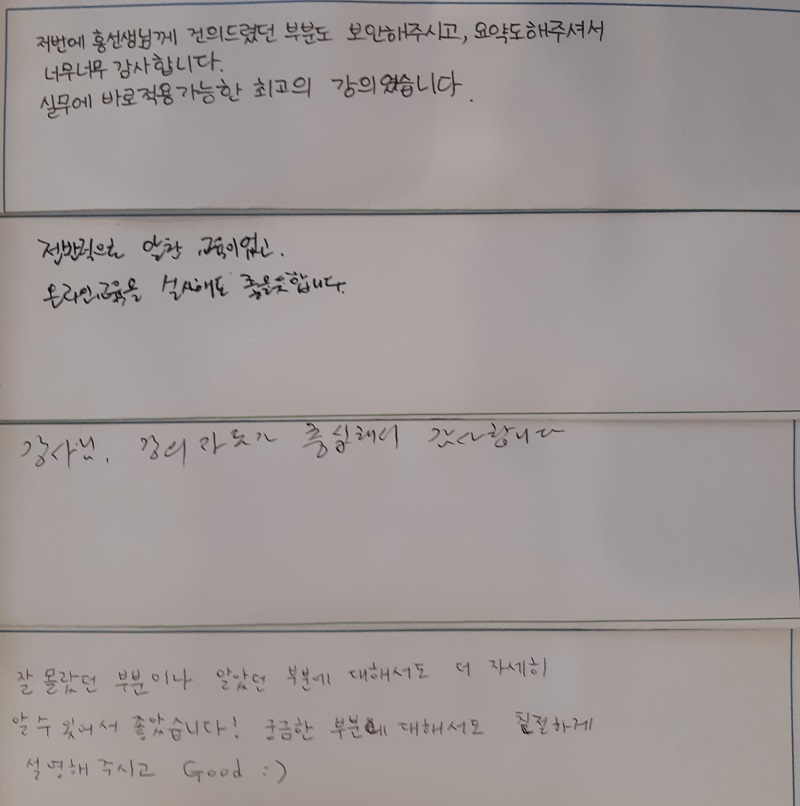 저번에 홍선생님께 건의드렸던 부분도 보안해주시고, 요약도해주셔서
너무너무 감사합니다.
실무에 바로적용가능한 최고의 강의였습니다.
전반적으로 알찬 교육이었고.
온라인교육을 실시해도 좋을듯합니다.
강사님, 강의 충실해서 감사합니다
잘 몰랐던 부분이나 알았던 부분에 대해서도 더 자세히
알 수 있어서 좋았습니다! 궁금한 부분에 대해서도 친절하게
설명해 주시고 Good :)